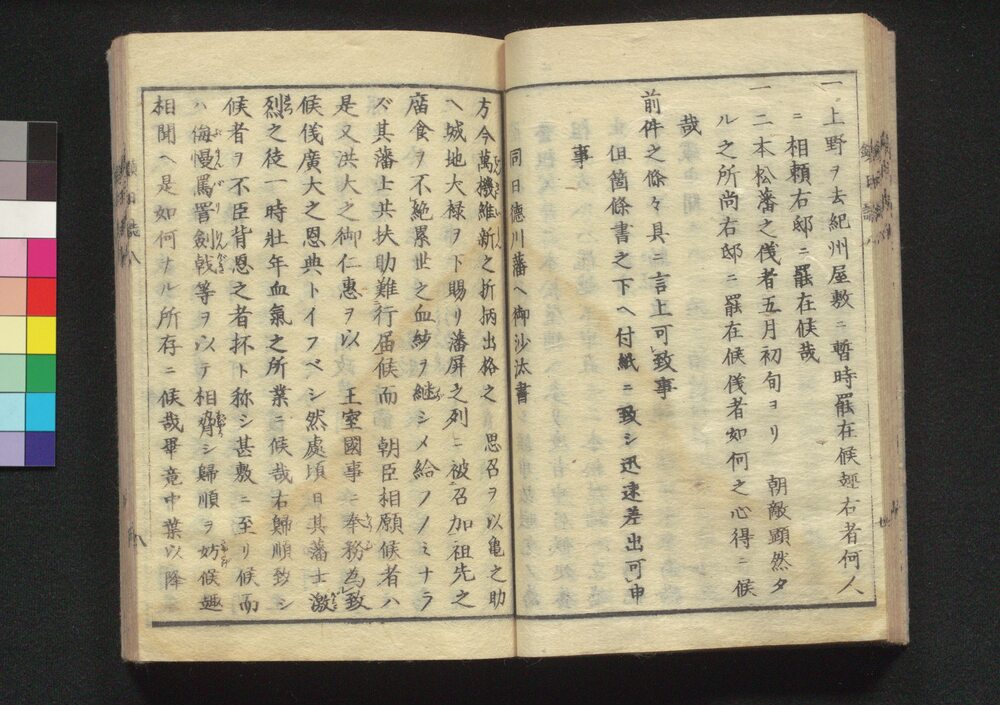 一上野ヲ去紀州屋敷ニ暫時罷在候輕右者何人
ニ相頼右邸ニ罷在候哉
一二本松藩之儀者五月初旬ヨリ　朝敵顕然タ
ル之所尚右邸ニ罷在候儀者如何之心得ニ候
哉
前件之條々具ニ言上可致事
但箇條書之下ヘ付紙ニ致シ迅速差出可申
事
同日徳川藩ヘ御沙汰書
方今萬機維新之折柄出格之　思召ヲ以亀之助
ヘ城地大禄ヲ下賜リ藩屏之列ニ被召加祖先之
廟食ヲ不絶累世之血紗ヲ継シメ給フノミナラ
ズ其藩士共扶助難行届候而　朝臣相願候者ハ
是又洪大之御仁惠ヲ以　王室國事ニ奉務為致
候儀廣大之恩典トイフベシ然處頃日其藩士激
烈之徒一時壮年血氣之所業ニ候哉右歸順致シ
候者ヲ不臣背恩之者抔ト称シ甚敷ニ至リ候而
ハ侮慢罵詈劍戟等ヲ以テ相脅シ歸順ヲ妨候趣
相聞ヘ是如何ナル所存ニ候哉畢竟中葉以降